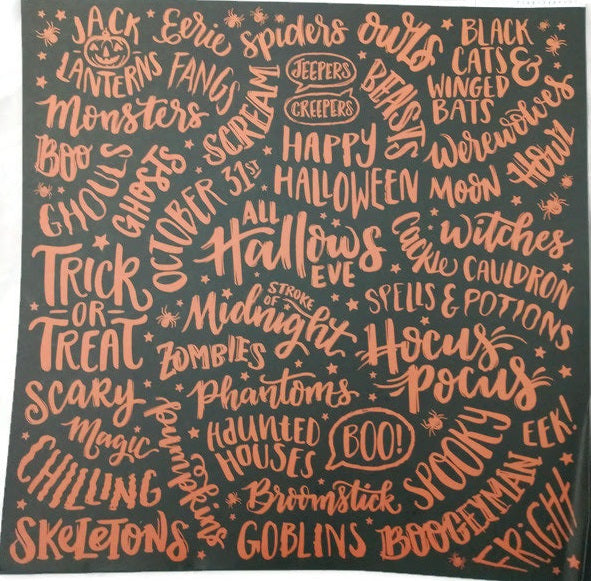 JACK
LANTERNS
Eerie
FANGS
Spiders
JEEPERS
CREEPERS
OWLS
BEASTS
BLACK
CATS &
WINGED
BATS
Monsters
SCREAM
HAPPY
HALLOWEEN
Werewolves
HOWL
MOON
BOO
GHOULS
GHOSTS
OCTOBER 31ST
ALL
Hallows
EVE
Witches
Cackle CAULDRON
SPELLS & POTIONS
TRICK
-OR-
TREAT
STROKE
OF
Midnight
ZOMBIES
HOCUS
POCUS
SCARY
Phantoms
Magic
Pumpkins
HAUNTED
HOUSES
BOO!
SPOOKY
EEK!
CHILLING
Broomstick
BOOGEYMAN
FRIGHT
SKELETONS
GOBLINS